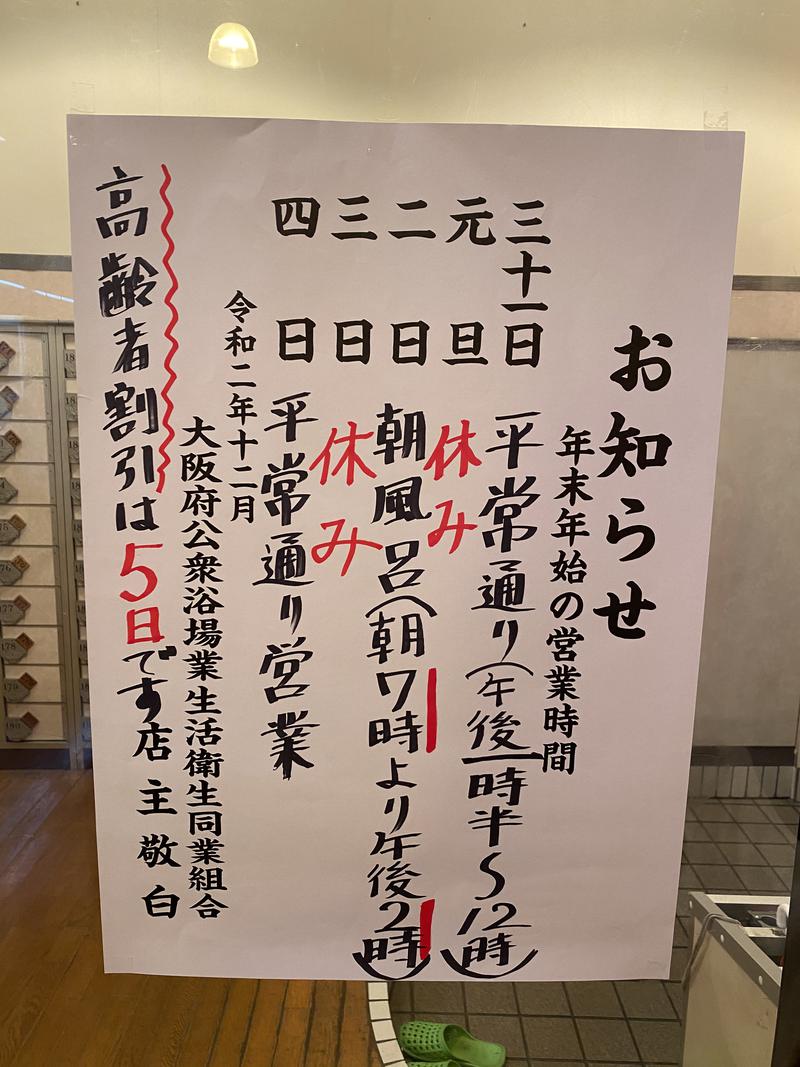 お知らせ
年末年始の営業時間
三十一日 平常通り(午後一時半~12時)
元旦 休み
二日 朝風呂(朝7時より午後2時)
三日 休み
四日 平常通り営業
令和二年十二月
大阪府公衆浴場業生活衛生同業組合
店主敬白
高齢者割引は5日です